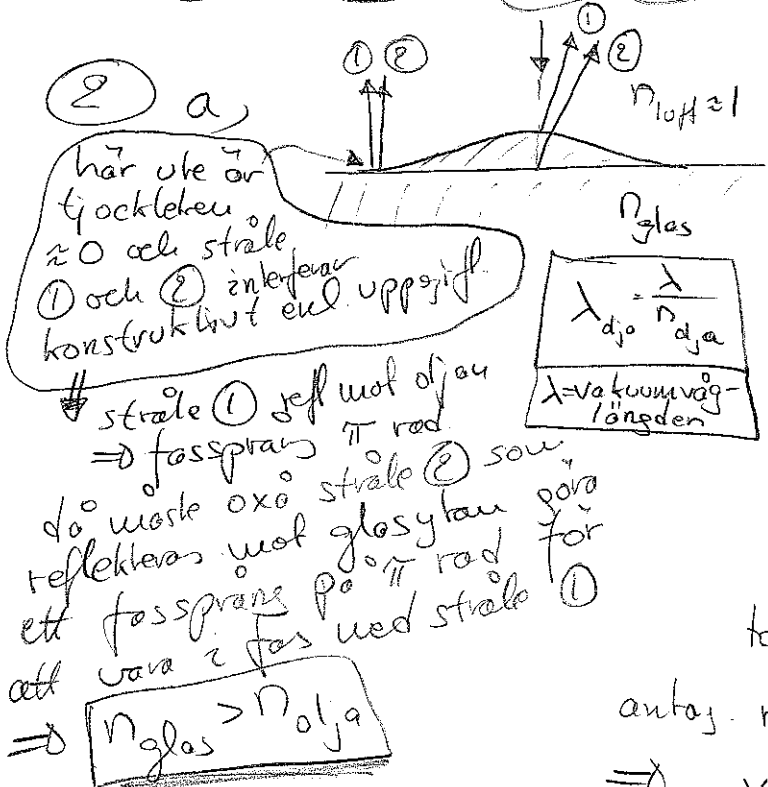 ① ②
①
②
n luft ≈ 1
② a,
här ute är
tjockleken
≈ 0 och stråle
① och ② interferar
konstruktivt enl. uppgift.
n glas
λ olja = λ / n olja
λ = vakuumvåg-
längden
⇓ stråle ① refl mot oljan
⇒ fassprång π rad
då måste oxå stråle ② som
reflekteras mot glasytan göra
ett fassprång på π rad för
att vara i fas med stråle ①
⇒ n glas > n olja
antag.
⇒